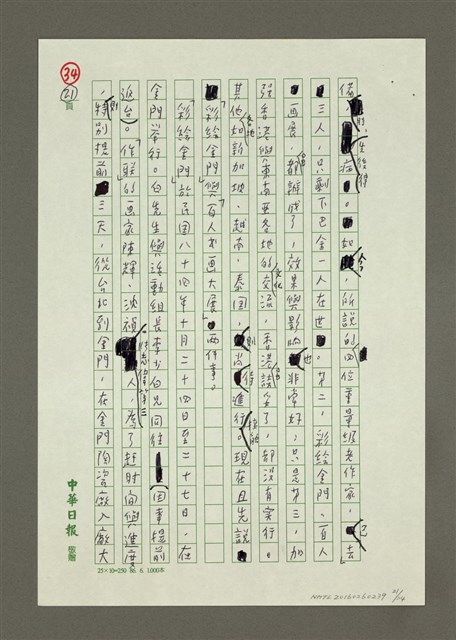 34
21
頁
備，時，生後病。如今，所說的四位重量級老作家，已去
三人，只剩下巴金一人在世。第二，彩繪金門、百人
畫展，都辦成了，效果與影響也非常好；只是第三，加
強香港與東南亞各地的文化交流，香港談妥了，都沒有實行。
其他各地如新加坡、越南、泰國，則尚待進行。現在且先說
「彩繪金門與百人書畫大展」兩件事。
「彩繪金門」於民國八十四年十月二十四日至二十七日，在
金門舉行。白先生與活動組長李少白兄同往（因事提前
返台）。作陪的畫家陳輝、沈禎、人，為了趕時間與進度
，則特別提前三天，從台北到金門，在金門陶瓷廠入廠大
中華日報
25×10=250 86. 6. 1,000本
NMTL20160260239 21/24